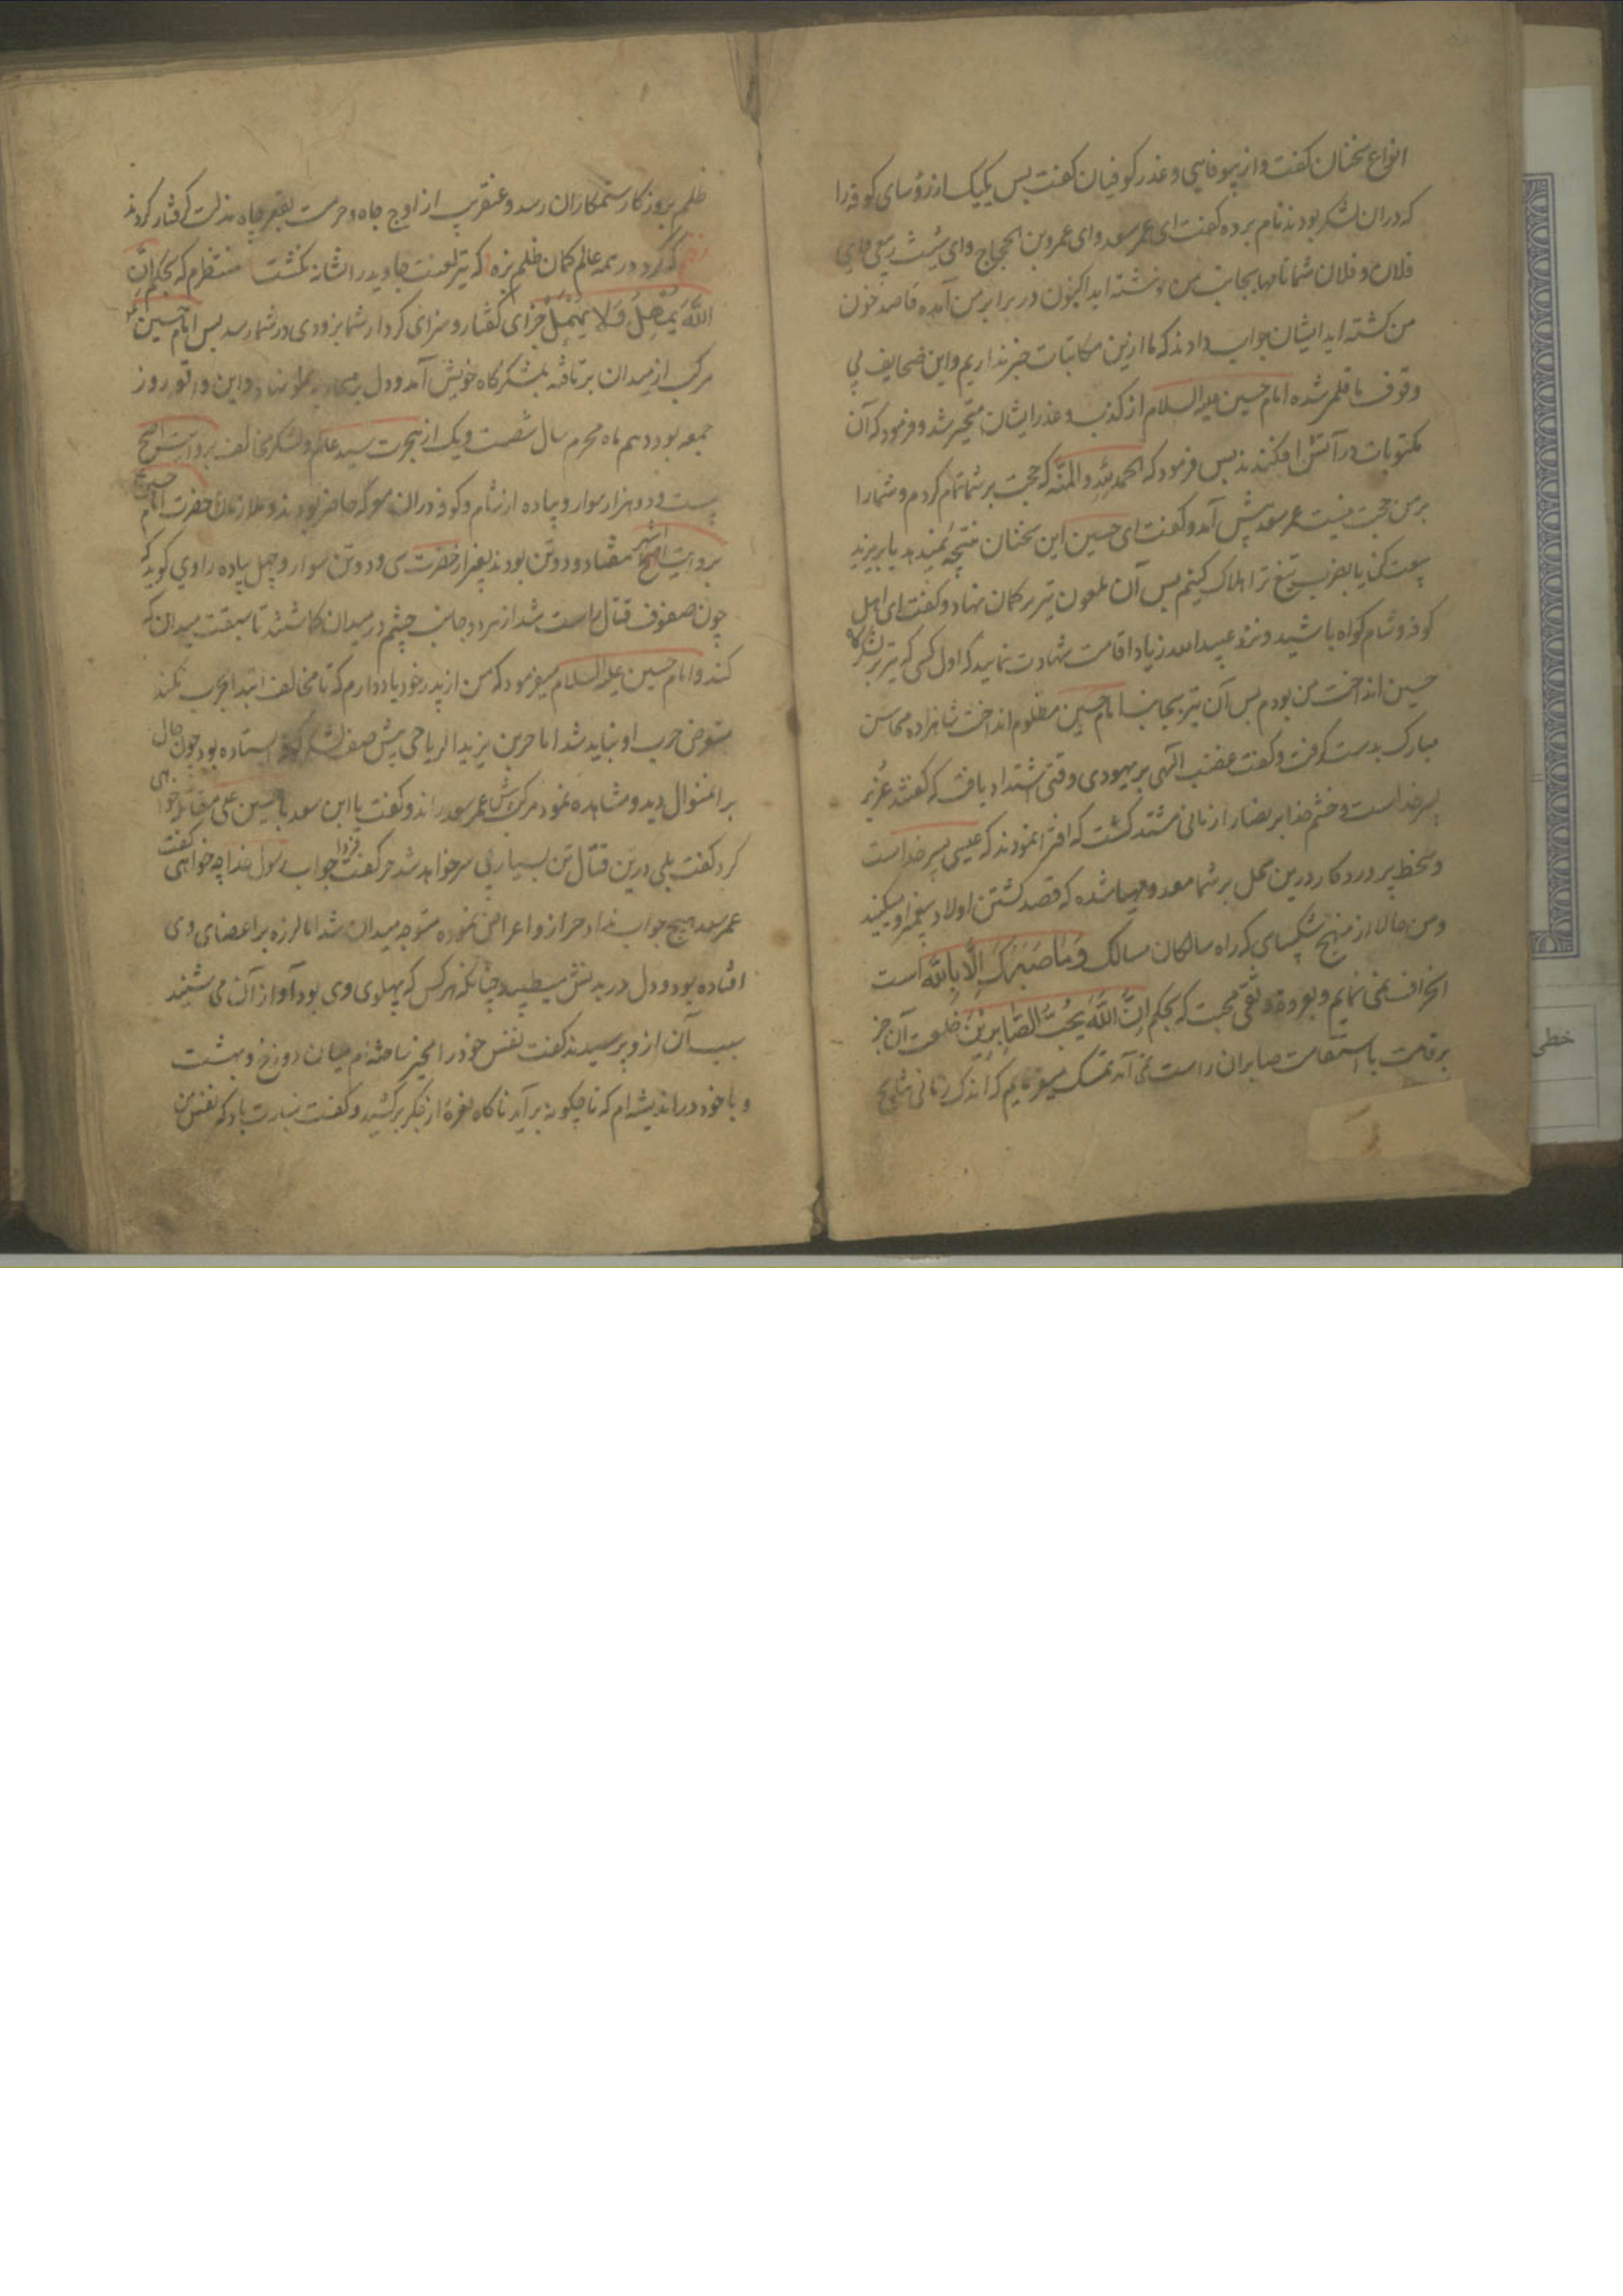 انواع سخنان کفت و از بیوفایی و غدر کوفیان کفت بس یکیک از رؤسای کوفه را
که دران لشکر بودند نام برده کفت ای عمر سعد وای عمرو بن الحجاج وای شبث ربعی وای
فلان و فلان شما نامها بجانب من نوشته اید اکنون در برابر من آمده قاصد خون
من کشته اید ایشان جواب دادند که ما ازین مکاتبات خبر نداریم و این صحایف بی
وقوف ما قلمی شده امام حسین علیه السلام از کذب و غدر ایشان متحیر شد و فرمود که آن
مکتوبات در آتش افکنند بس فرمود که الحمد لله والمنه که حجت بر شما تمام کردم و شما را
بر من حجت نیست عمر سعد پیش آمد و کفت ای حسین این سخنان نتیجه نمیدهد یا بریزید
بیعت کنی یا بضرب تیغ ترا هلاک کنیم بس آن ملعون تیر بر کمان نهاد و کفت ای اهل
کوفه و شام کواه باشید و نزد عبید الله زیاد اقامت شهادت نمایید که اول کسی که تیر بر لشکرکاه
حسین انداخت من بودم بس آن تیر بجانب امام حسین مظلوم انداخت شاهزاده محاسن
مبارک بدست کرفت و کفت غضب الهی بر یهود وقتی اشتداد یافت که کفتند عزیر
پسر خداست و خشم خدا بر نصارا زمانی مشتد کشت که افترا نمودند که عیسی پسر خداست
و سخط پروردکار درین محل بر شما معد و مهیا شده که قصد کشتن اولاد پیغمبر او میکنید
ومن حالا از منهج شکیبای که راه سالکان مسالک وَمَا صَبْرُكَ اِلَّا بِاللّٰه است
انحراف نمی نمایم و بعروة وثقی محبت که بحکم اِنَّ اللّٰهَ یُحِبُّ الصَّابِرِیْنَ خلعت آن جز
بر قامت با استقامت صابران راست نمی آید تمسک میفرمایم که اندک زمانی نتایج
ظلم بروزکار ستمکاران رسد و عنقریب از اوج جاه و حرمت بقعر چاه مذلت کرفتار کردند
که کرد در همه عالم کمان ظلم بزه که تیر لعنت جاوید را نشانه نکشت منتظرم که بحکم اِنَّ
اللّٰهَ یُمْهِلُ وَلَا یُهْمِلُ جزای کفتار و سزای کردار شما بزودی در شما رسد بس امام حسین
مرکب از میدان برتافته بلشکرکاه خویش آمد و دل بر نهاد و این واقعه روز
جمعه بود دهم ماه محرم سال شصت و یک از هجرت سید عالم و لشکر مخالف بروایت اصح
بیست و دو هزار سوار و پیاده از شام و کوفه دران معرکه حاضر بودند و ملازمان حضرت امام حسین
بروایت اصح اشهر هفتاد و دو تن بودند بغیر از حضرت سی و دو تن سوار و چهل پیاده راوی کوید که
چون صفوف قتال راست شد از هر دو جانب چشم در میدان کاشتند تا سبقت میدان که
کند و امام حسین علیه السلام میفرمود که من از پدر خود یاد دارم که تا مخالف ابتدا بحرب نکند
متعرض حرب او نباید شد اما حر بن یزید الریاحی پیش صف لشکر کوفه استاده بود چون حال
برانمنوال دید و مشاهده نمود مرکب پیش عمر سعد راند و کفت یا ابن سعد با حسین علی مقاتله خواهی
کرد کفت بلی درین قتال تن بسیار بی سر خواهد شد حر کفت فردا جواب رسول خدا چه خواهی کفت
عمر سعد هیچ جواب نداد حر ازو اعراض نموده متوجه میدان شد اما لرزه بر اعضای وی
افتاده بود و دل در بدنش میطپید چنانکه هر کس که پهلوی وی بود آواز آن می شنید
سبب آن ازو پرسیدند کفت نفس خود را مخیر ساخته ام میان دوزخ و بهشت
و با خود در اندیشه ام که تا چکونه برآید ناکاه نعره از جکر برکشید و کفت بشارت باد که نفس من
خطی